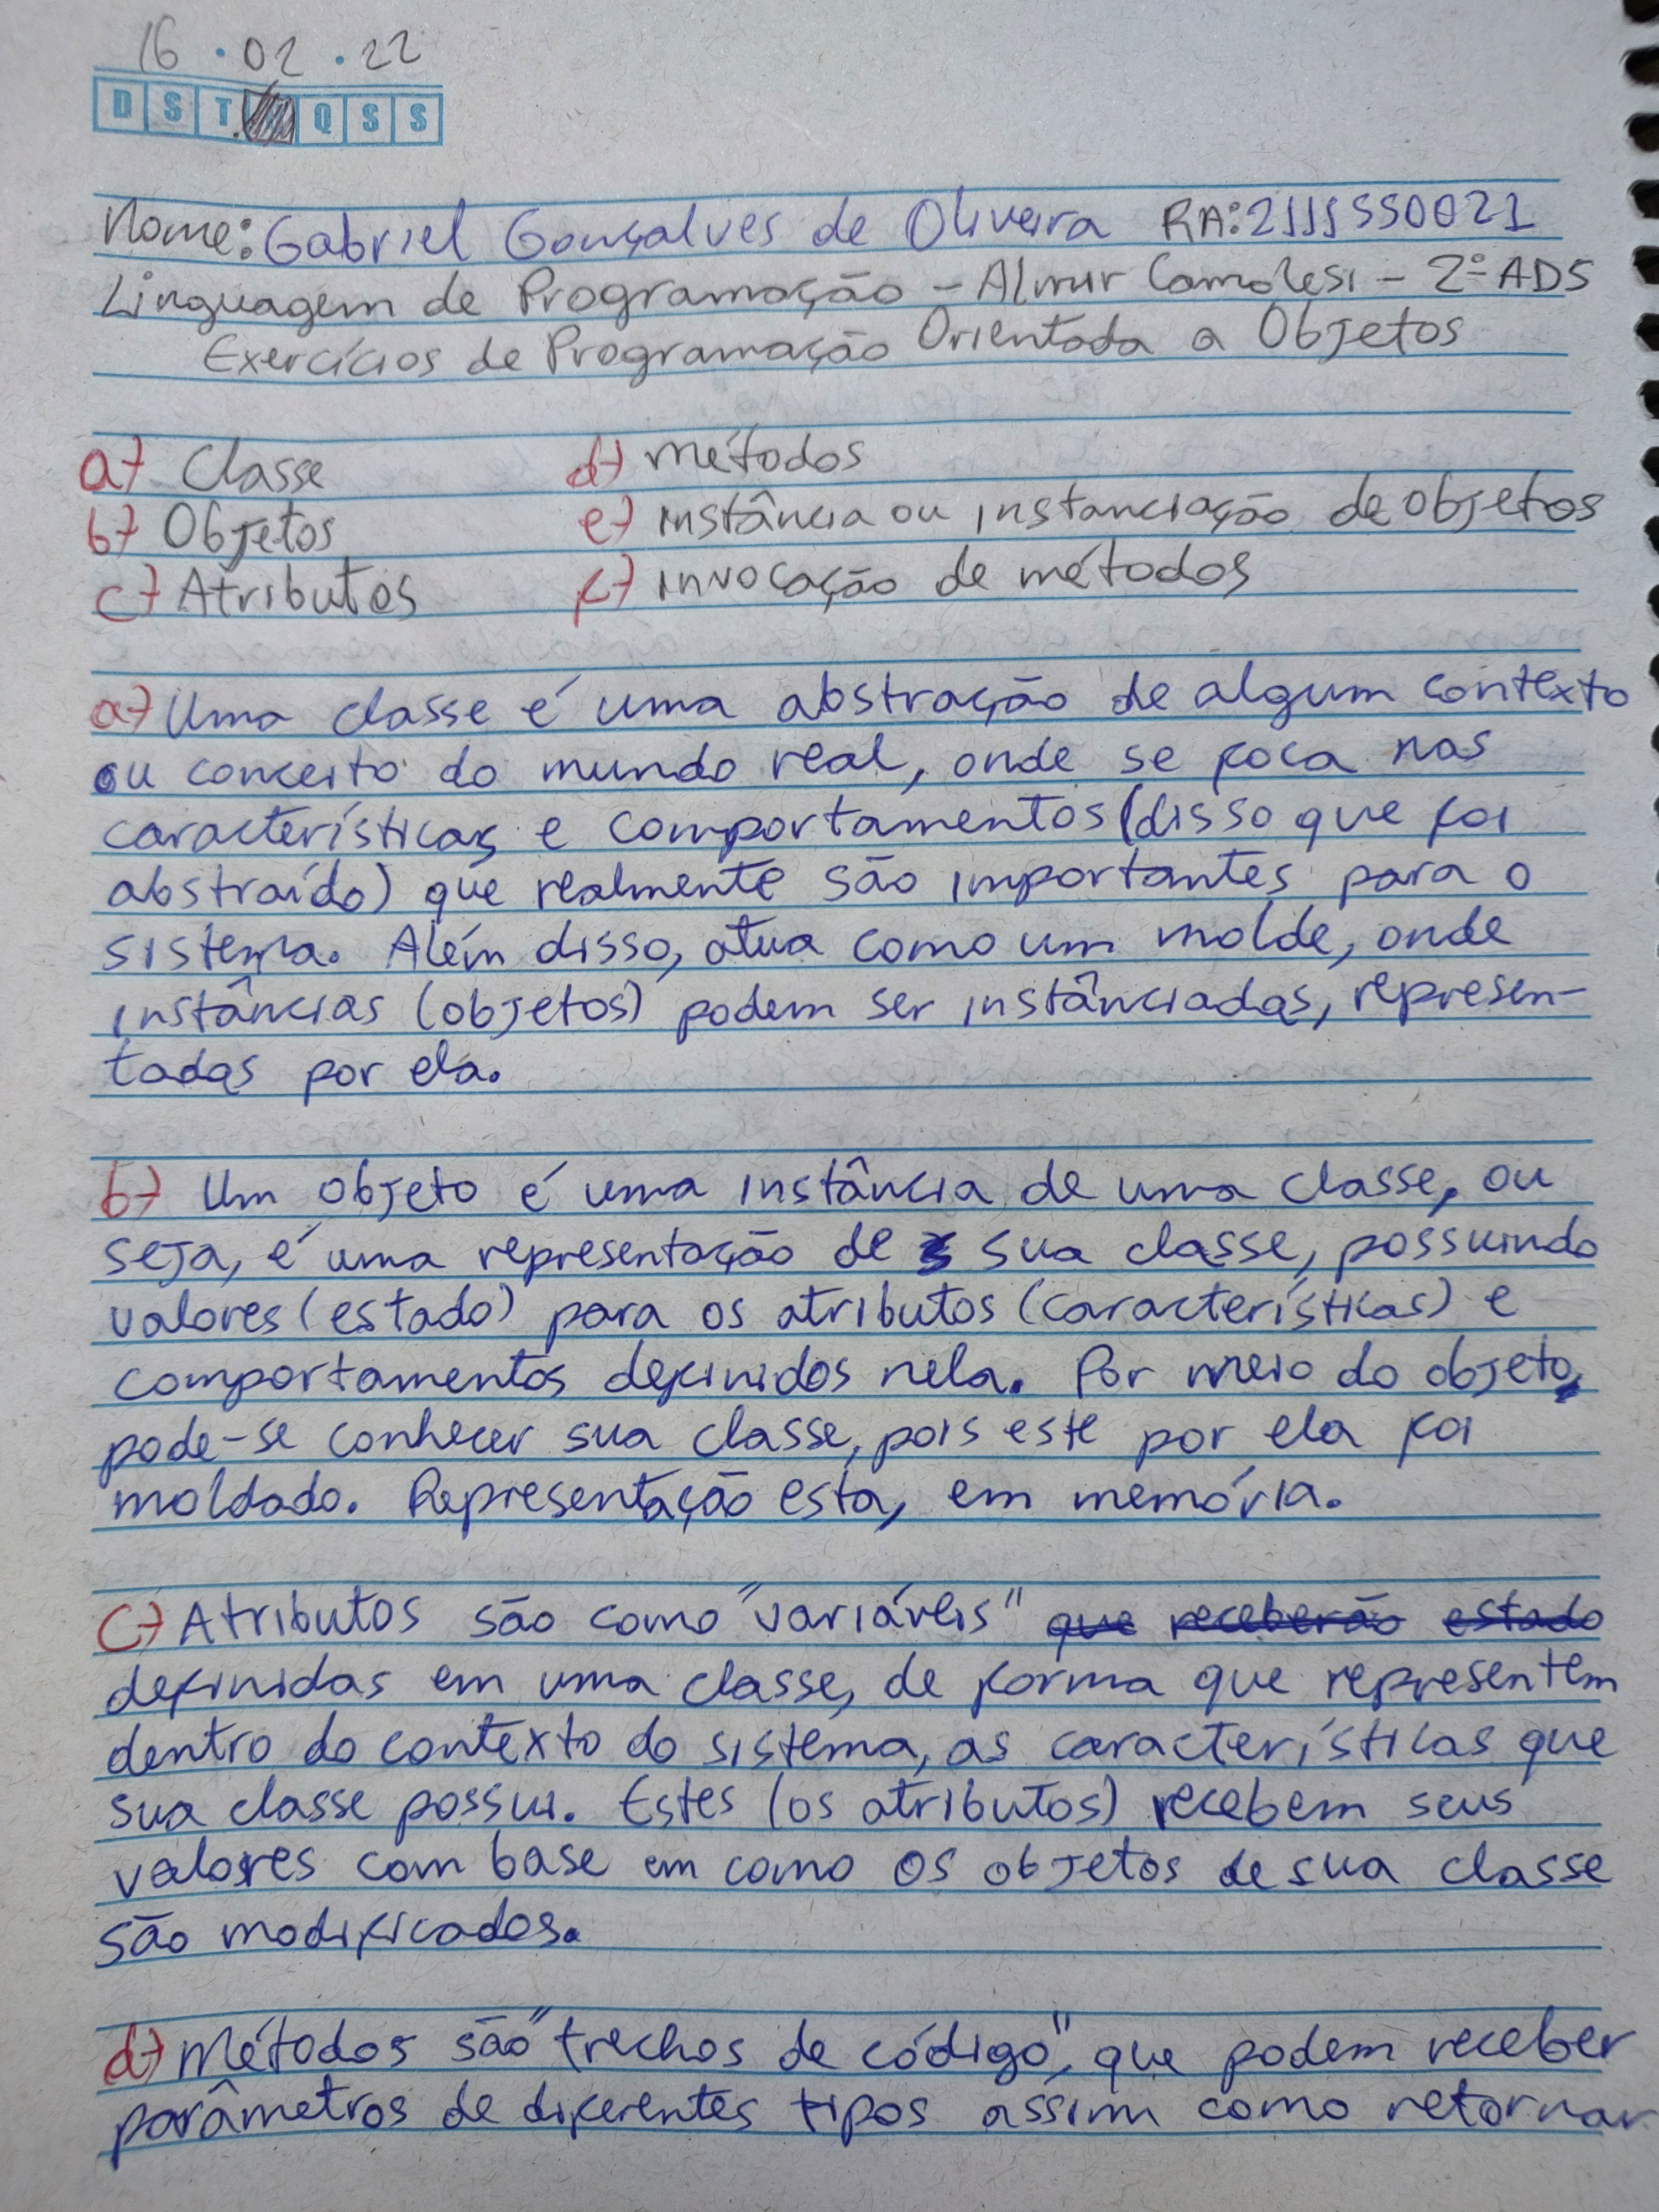 16 . 02 . 22
D S T Q S S
Nome: Gabriel Gonçalves de Oliveira RA: 2111550021
Linguagem de Programação - Almir Camolesi - 2º ADS
Exercícios de Programação Orientada a Objetos
a) Classe d) métodos
b) Objetos e) instância ou instanciação de objetos
c) Atributos f) invocação de métodos
a) Uma classe é uma abstração de algum contexto
ou conceito do mundo real, onde se foca nas
características e comportamentos (disso que foi
abstraído) que realmente são importantes para o
sistema. Além disso, atua como um molde, onde
instâncias (objetos) podem ser instânciadas, represen-
tadas por ela.
b) Um objeto é uma instância de uma classe, ou
seja, é uma representação de sua classe, possuindo
valores (estado) para os atributos (características) e
comportamentos definidos nela. Por meio do objeto,
pode-se conhecer sua classe, pois este por ela foi
moldado. Representação esta, em memória.
c) Atributos são como "variáveis" que receberão estado
definidas em uma classe, de forma que representem
dentro do contexto do sistema, as características que
sua classe possui. Estes (os atributos) recebem seus
valores com base em como os objetos de sua classe
são modificados.
d) Métodos são "trechos de código", que podem receber
parâmetros de diferentes tipos assim como retornar